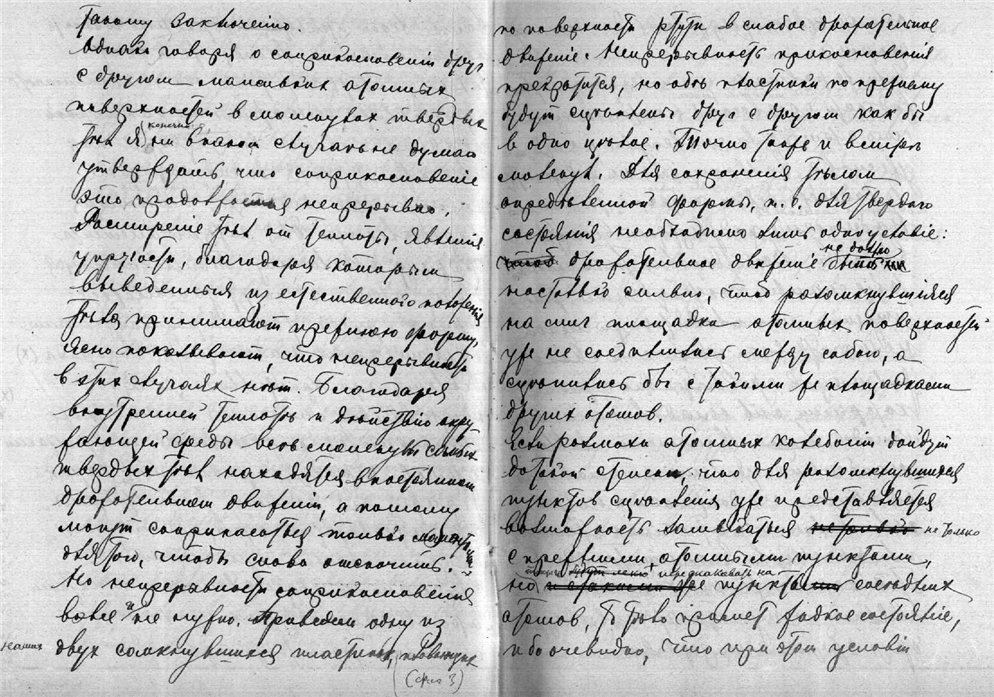 такому заключенію.
Однако говоря о соприкосновеніи друг
с другом массивных атомных
поверхностей в молекулах твердых
тѣл я конечно ни в каком случаѣ не думаю
утверждать что соприкосновеніе
это продолжается непрерывно.
Расширеніе тѣл от теплоты, явленія
упругости, благодаря которым
выведенныя из естественного положенія
тѣла принимают прежнюю форму,
ясно показывают, что непрерывности
в этих случаях нѣт. Благодаря
внутренней теплотѣ и дѣйствію окру
жающей среды весь молекул
твердых тѣл находятся в постоянном
дрожательном движеніи, а потому
могут соприкасаться только
для того, чтобы снова отскочить.
Но непрерывности соприкосновенія
вовсе и не нужно. Приведем одну из
наших двух сомкнувшихся пластинок, плавающих
(фиг 3)
по поверхности ртути в слабое дрожательное
движеніе. Непрерывность прикосновенія
прекратится, но обѣ пластинки по прежнему
будут сцѣплены друг с другом как бы
в одно цѣлое. Точно тоже и внутри
молекул. Для сохраненія тѣлом
опредѣленной формы, т. е. для твердого
состоянія необходимо лишь одно условіе:
дрожательное движеніе не должно быть
настолько сильно, чтоб разомкнувшіяся
на миг площадки атомных поверхностей
уже не соединились между собою, а
сцѣпились бы с такими же площадками
других атомов.
Если размахи атомных колебаній дойдут
до такой степени, что для разомкнувшихся
пунктов сцѣпленія уже представляется
возможность замыкаться не только
с прежними атомными пунктами,
но перескакивать на пункты сосѣдних
атомов, то тѣло примет жидкое состояніе,
ибо очевидно, что при этом условіи